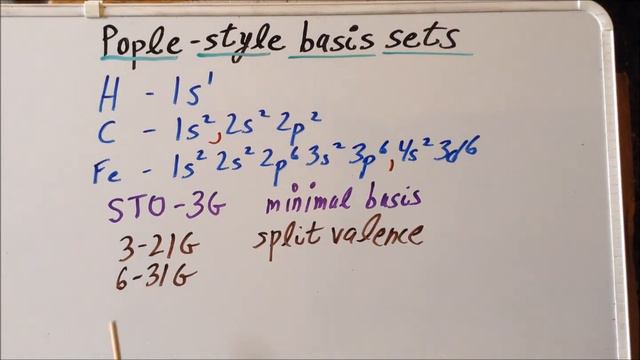 Pople-style basis sets
H - 1s¹
C - 1s², 2s² 2p²
Fe - 1s² 2s² 2p⁶ 3s² 3p⁶, 4s² 3d⁶
STO-3G minimal basis
3-21G split valence
6-31G